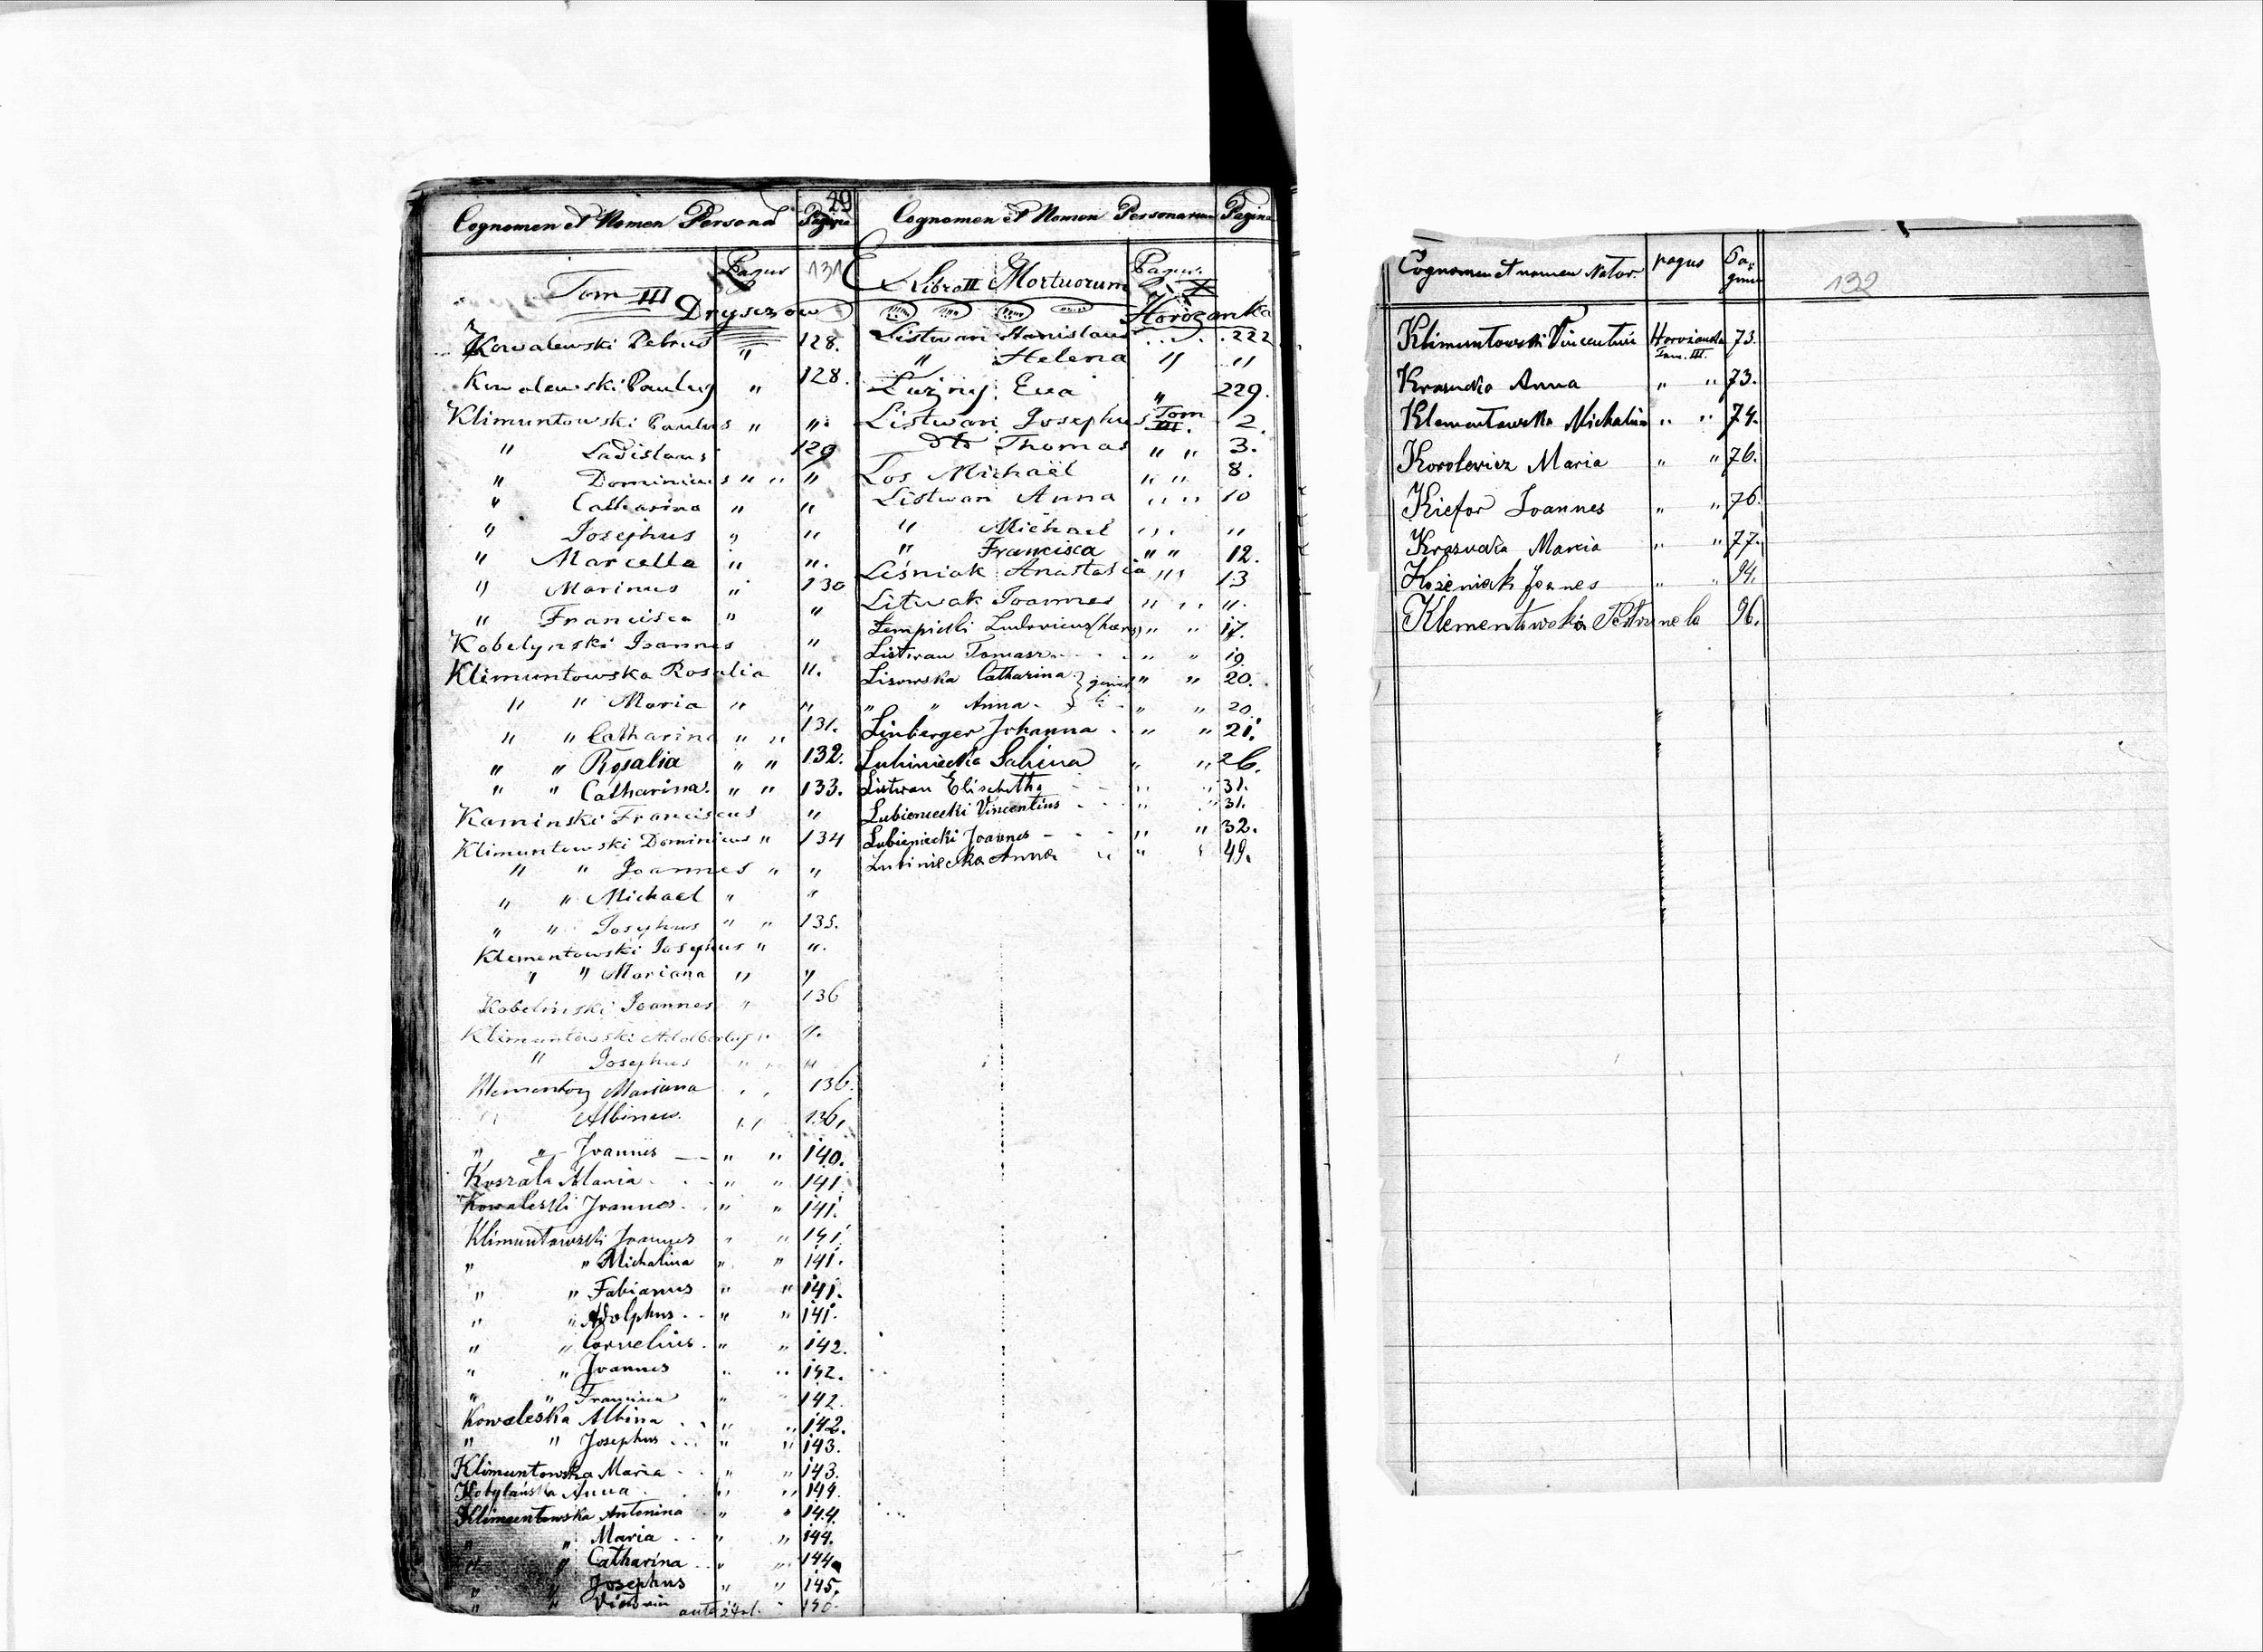 29
Cognomen et Nomen Persona Pagina
131
Pagus
Tom III
Dryszow
Kowalewski Petrus " 128.
Kowalewski Paulus " 128.
Klimuntowski Paulus " "
" Ladislaus 129
" Dominicus " " "
" Catharina " "
" Josephus " "
" Marcella " "
" Marinus " 130
" Francisca " "
Kobelynski Joannes "
Klimuntowska Rosalia ".
" " Maria " "
" " Catharina " " 131.
" " Rosalia " " 132.
" " Catharina. " " 133.
Kaminski Franciscus "
Klimuntowski Dominicus " 134
" " Joannes " "
" " Michael " "
" " Josephus " " 135.
Klementowski Josephus " ".
" " Mariana " "
Kobelinski Joannes " 136
Klimuntowski Adalbertus " ".
" Josephus " " "
Mariana " " 136.
Albinus " 136.
" " Joannes " " 140.
Koszala Maria " " 141
Kowaleski Joannes " " 141.
Klimuntowski Joannes " " 141
" " Michalina " " 141.
" " Fabianus " " 141.
" " Adolphus " " 141.
" " Cornelius " " 142.
" " Joannes " " 142.
" " Francisca " " 142.
Kowaleska Albina " " 142.
" " Josephus " " 143.
Klimuntowska Maria " " 143.
Kobylańska Anna " " 144.
Klimuntowska Antonina " " 144
" " Maria " " 144.
" " Catharina " " 144
" " Josephus " " 145.
" "
Cognomen et Nomen Personarum Pagina
Ex Libro II Mortuorum Pagus
Horożanka
Listwan Stanislaus 222
" Helena " "
Luzny Eva " 229.
Listwan Josephus Tom III. 2.
dto Thomas " " 3.
Los Michaël " " 8.
Listwan Anna " " 10
" Michael " " "
" Francisca " " 12.
Leśniak Anastasia " " 13
Litwak Joannes " " "
Łempicki Ludovicus " " 17.
Listwan Tomasz " " 19.
Lisowska Catharina " " 20.
" " Anna " " 20
Linberger Johanna " " 21.
Lubiniecka Sabina " " 26.
Listwan Elisabetha " " 31.
Lubieniecki Vincentius " " 31.
Lubieniecki Joannes " " 32.
Lubiniecka Anna " " 49.
Cognomen et nomen Nator. pagus Pagina
132
Klimuntowski Vincentius Tom. III. 73.
Krasucka Anna " " 73.
Klementowska Michalina " " 74.
Korolewicz Maria " " 76.
Kiefor Joannes " " 76.
Krasucka Maria " " 77.
Kozieniak Joanes " " 94.
Klementowska Petronela 96.